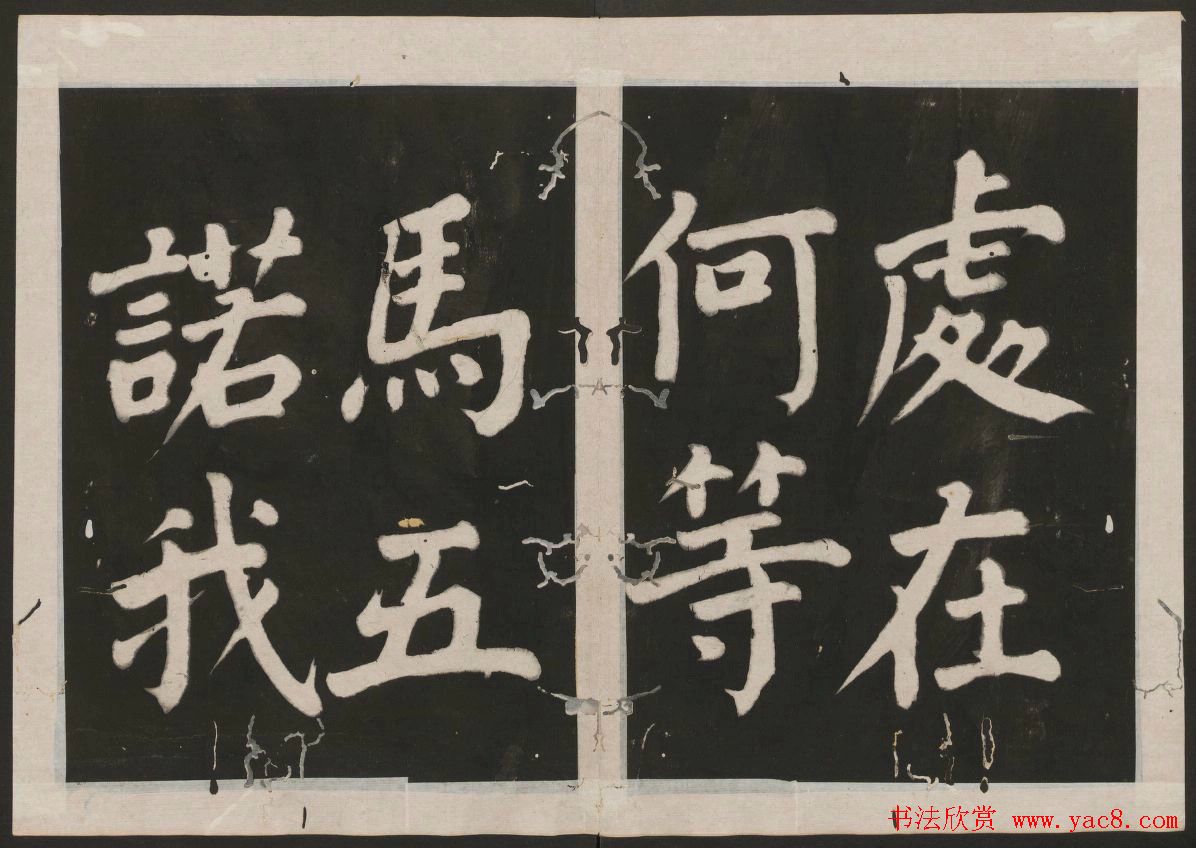 處在
何等
馬五
諾我
书法欣赏 www.yac8.com